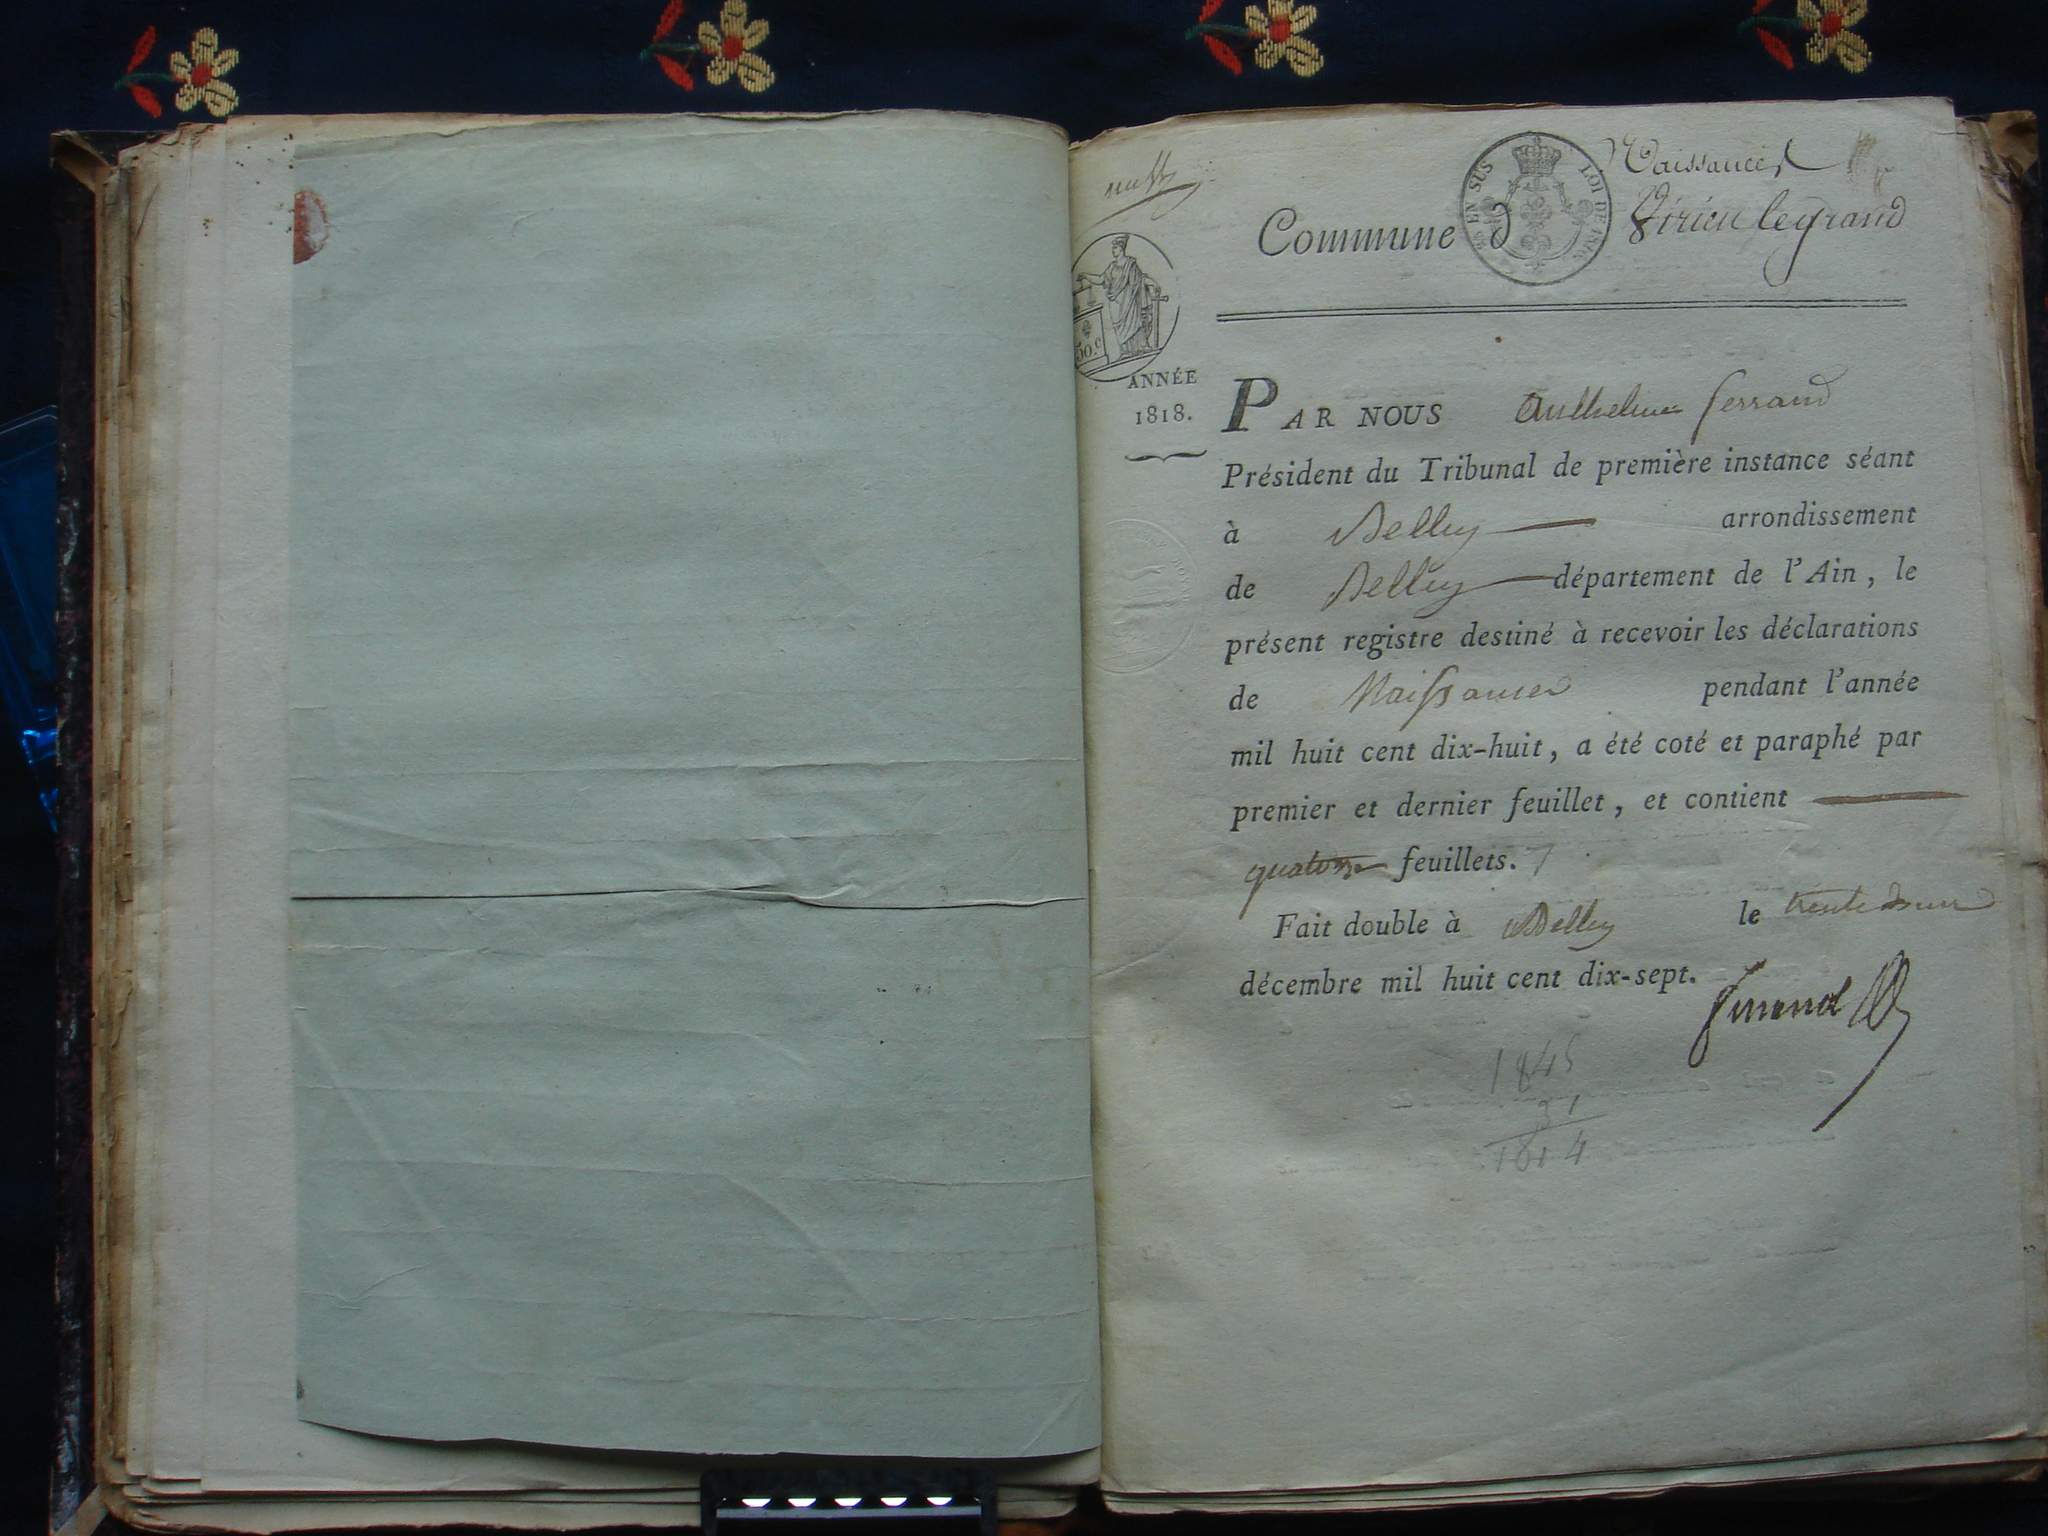 Naissances
Commune d Virieu legrand
EN SUS LOI DE
50.c
ANNÉE
1818.
PAR NOUS Anthelme ferrand
Président du Tribunal de première instance séant
à Belley arrondissement
de Belley département de l'Ain, le
présent registre destiné à recevoir les déclarations
de Naissances pendant l'année
mil huit cent dix-huit, a été coté et paraphé par
premier et dernier feuillet, et contient
quatorze feuillets.
Fait double à Belley le trente
décembre mil huit cent dix-sept.
1845
31
1814